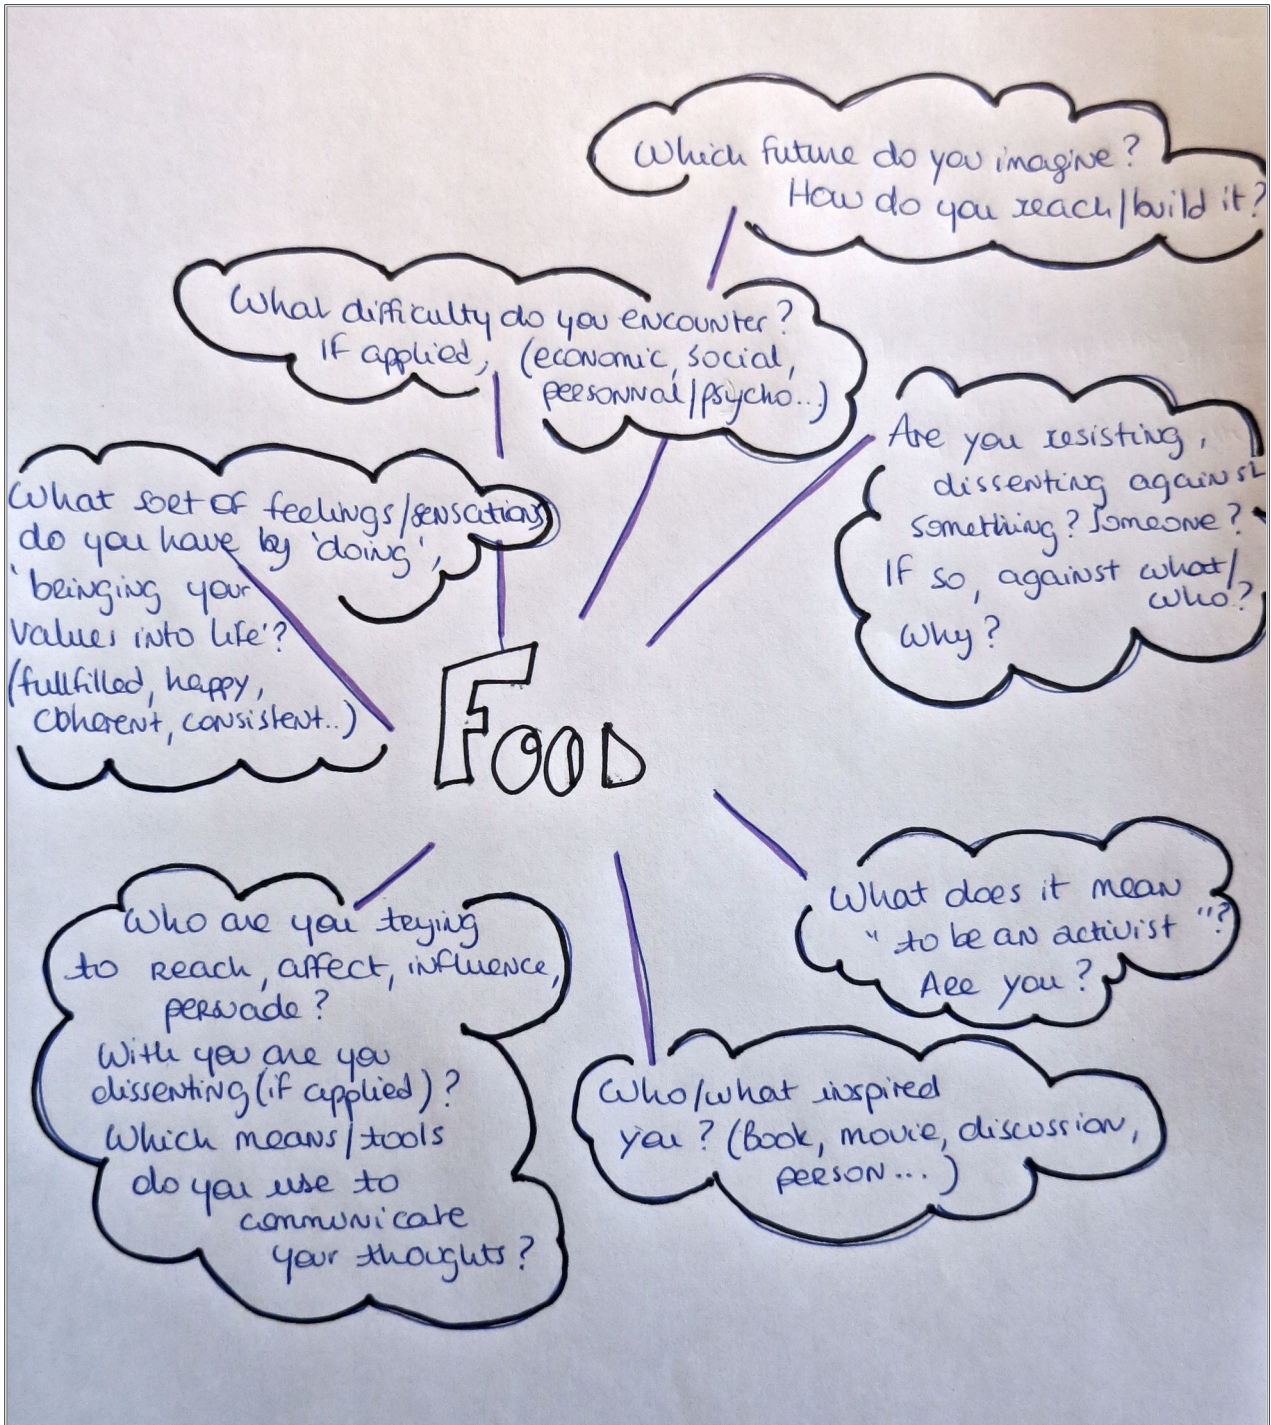 Which future do you imagine?
How do you reach/build it?
What difficulty do you encounter?
If applied, (economic, social,
personnal/psycho...)
Are you resisting,
dissenting against
something? Someone?
If so, against what/
who?
Why?
What sort of feelings/sensations
do you have by 'doing',
'beinging your
values into life'?
(fullfilled, happy,
coherent, consistent..)
FOOD
Who are you trying
to reach, affect, influence,
persuade?
With you are you
dissenting (if applied)?
Which means/tools
do you use to
communicate
your thoughts?
What does it mean
"to be an activist"?
Are you?
Who/what inspired
you? (Book, movie, discussion,
person...)